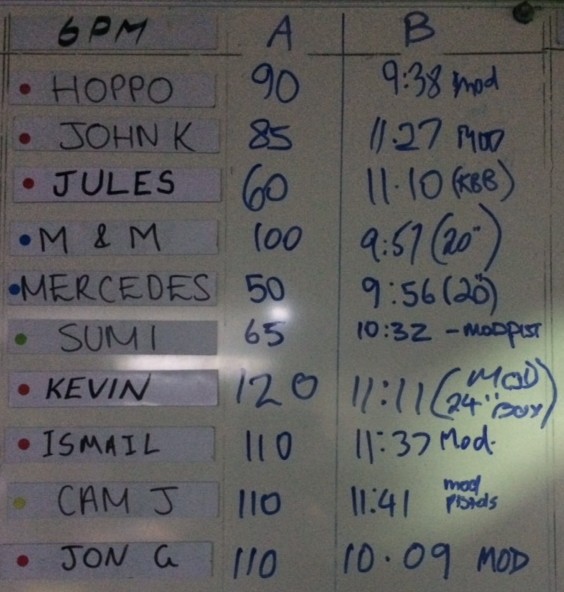 6PM A B
HOPPO 90 9:38 mod
JOHN K 85 11.27 MOD
JULES 60 11.10 (KBB)
M & M 100 9:57 (20")
MERCEDES 50 9:56 (20")
SUMI 65 10:32 - MODPIST
KEVIN 120 11:11 (MOD
24" BOX)
ISMAIL 110 11:37 Mod.
CAM J 110 11:41 mod
pistols
JON G 110 10.09 MOD